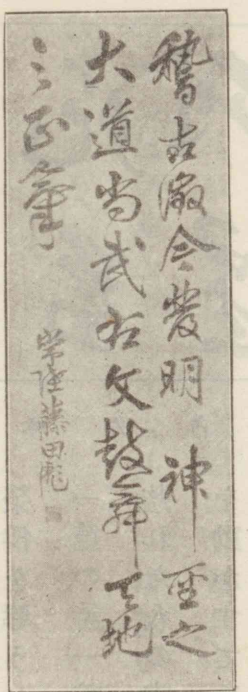 稽古徴今發明 神聖之
大道尚武右文鼓舞天地
之正氣
常陸藤田彪